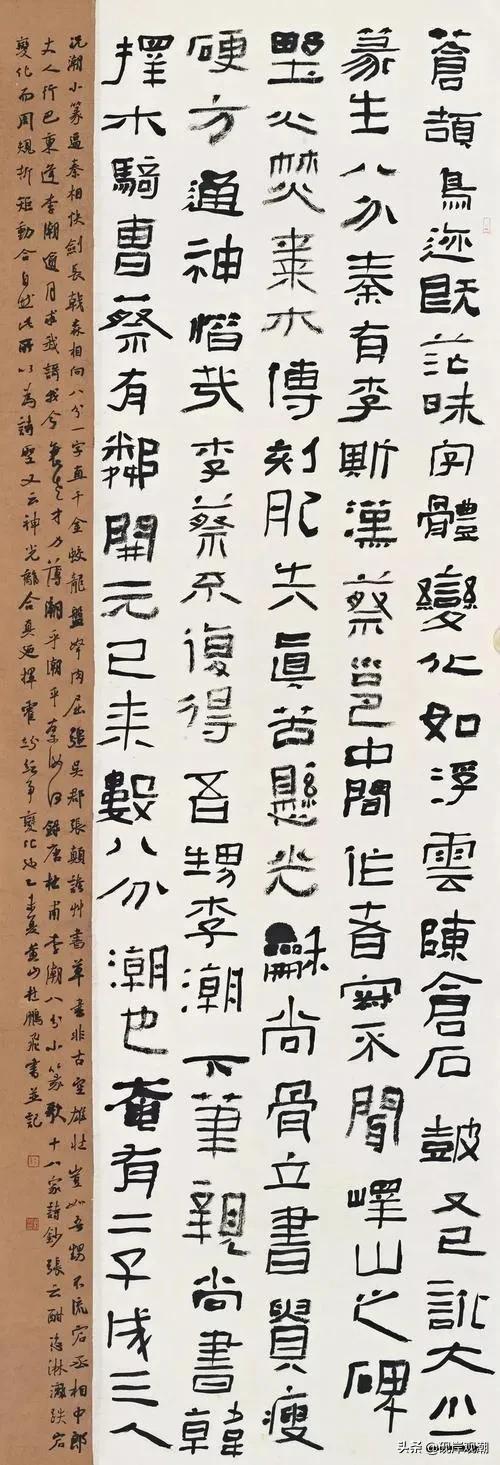 蒼頡鳥迹既茫昧字體變化如浮雲陳倉石鼓又已訛大小二
篆生八分秦有李斯漢蔡邕中間作者寂不聞嶧山之碑
野火焚棗木傳刻肥失真苦縣光龢尚骨立書貴瘦
硬方通神惜哉李蔡不復得吾甥李潮下筆親尚書韓
擇木騎曹蔡有鄰開元已来數八分潮也奄有二子成三人
況潮小篆逼秦相快劍長戟森相向八分一字直千金蛟龍盤拏肉屈強吳郡張顛誇艸書草書非古空雄壯豈如吾甥不流宕丞相中郎
丈人行巴東逢李潮逾月求我謌我今衰老才力薄潮乎潮乎奈汝何錄唐杜甫李潮八分小篆歌十八家詩鈔張云酣恣淋漓跌宕
變化而周規折矩動合自然此所以為詩聖又云神光離合真迺揮霍紛紜爭變化也乙未夏黃山杜鵬飛書並記
头条 @砚岸观潮